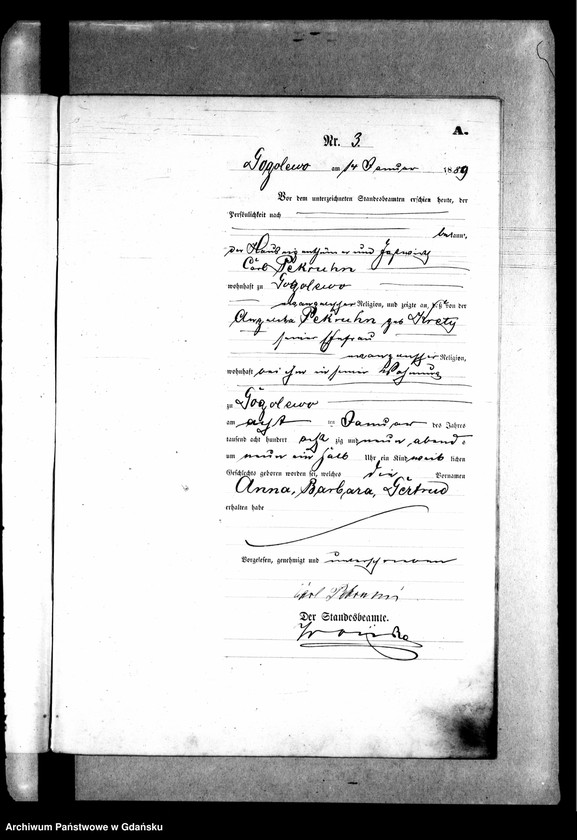 A.
Nr. 3.
Gogolewo am 14 Januar 1889
Vor dem unterzeichneten Standesbeamten erschien heute, der
Persönlichkeit nach
bekannt,
der Hauseigenthümer und
Carl Pekruhn
wohnhaft zu Gogolewo
evangelischer Religion, und zeigte an, daß von der
Pekruhn geb Krety
seiner Ehefrau
evangelischer Religion,
wohnhaft bei ihm in seiner Wohnung
zu Gogolewo
am acht ten Januar des Jahres
tausend acht hundert acht zig und neun abends
um neun ein halb Uhr ein Kind weib lichen
Geschlechts geboren worden sei, welches die Vornamen
Anna, Barbara, Gertrud
erhalten habe
Vorgelesen, genehmigt und unterschrieben
Carl
Der Standesbeamte.
Archiwum Państwowe w Gdańsku